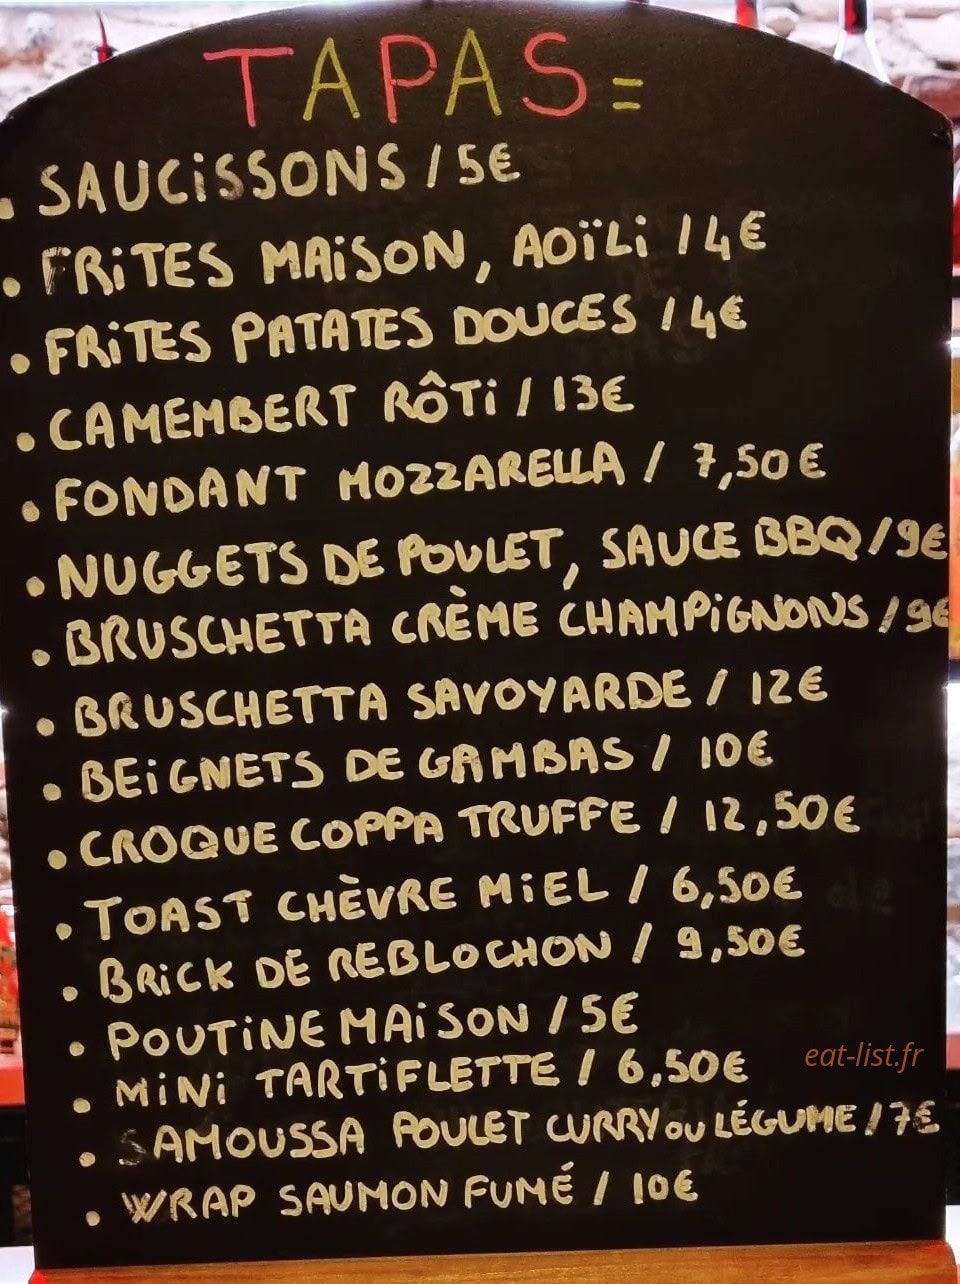 TAPAS =
• SAUCiSSONS / 5€
• FRiTES MAiSON, AOÏLi / 4€
• FRiTES PATATES DOUCES / 4€
• CAMEMBERT RÔTi / 13€
• FONDANT MOZZARELLA / 7,50€
• NUGGETS DE POULET, SAUCE BBQ / 9€
• BRUSCHETTA CRÈME CHAMPiGNONS / 9€
• BRUSCHETTA SAVOYARDE / 12€
• BEiGNETS DE GAMBAS / 10€
• CROQUE COPPA TRUFFE / 12,50€
• TOAST CHÈVRE MiEL / 6,50€
• BRiCK DE REBLOCHON / 9,50€
• POUTiNE MAiSON / 5€
• MiNi TARTiFLETTE / 6,50€
eat-list.fr
• SAMOUSSA POULET CURRY OU LÉGUME / 7€
• WRAP SAUMON FUMÉ / 10€